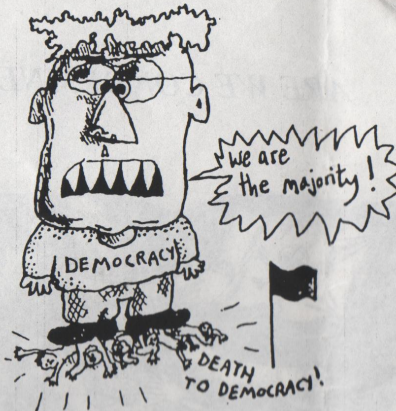 We are
the majority!
DEMOCRACY
DEATH
TO DEMOCRACY!